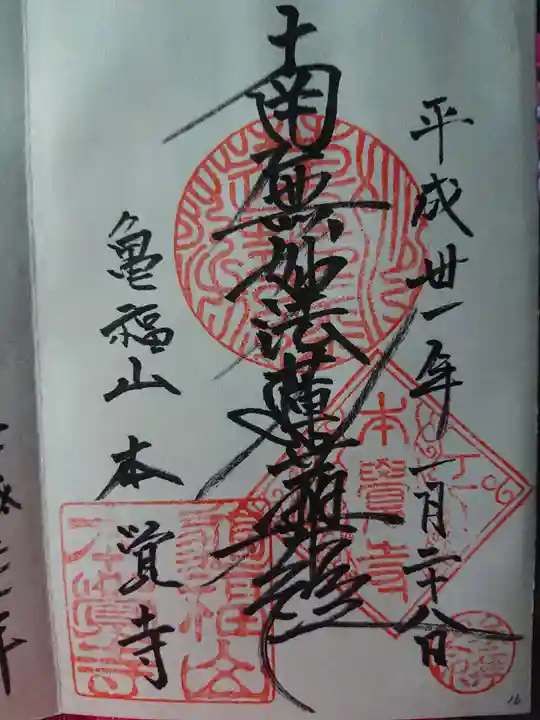 平成丗一年一月二十八日
南無妙法蓮華経
亀福山 本覚寺
本覺寺
16